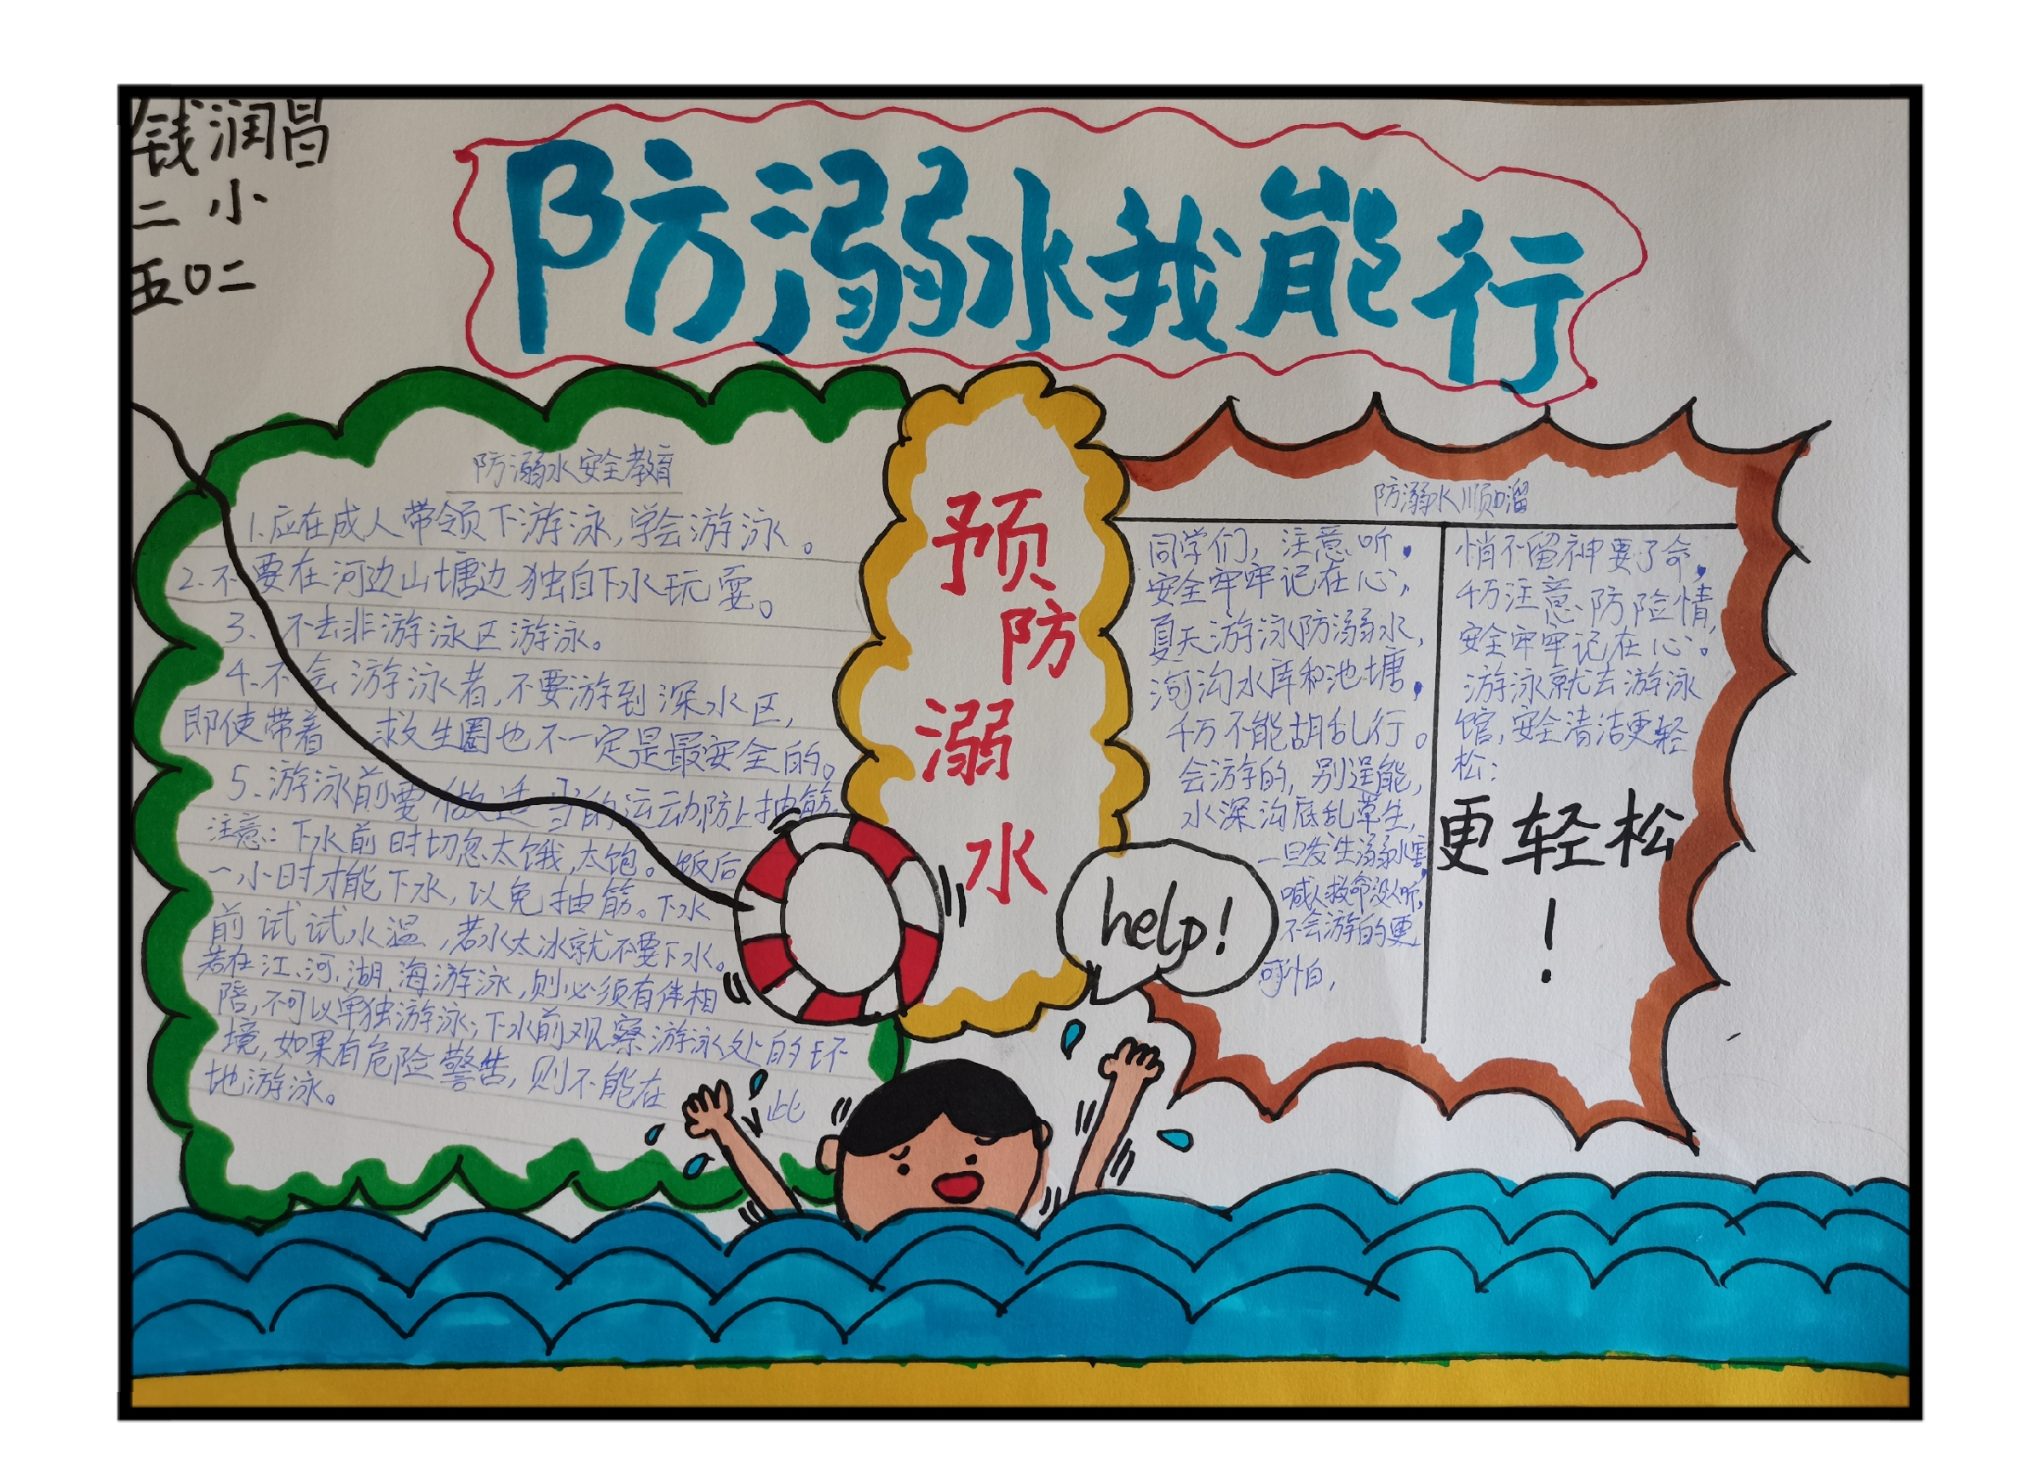 钱润昌
二小
五〇二
防溺水我能行
防溺水安全教育
1.应在成人带领下游泳,学会游泳。
2.不要在河边山塘边独自下水玩耍。
3、不去非游泳区游泳。
4.不会游泳者,不要游到深水区,
即使带着 救生圈也不一定是最安全的。
5.游泳前要做适当的运动防止抽筋
注意:下水前时切忽太饿,太饱。饭后
一小时才能下水,以免抽筋。下水
前试试水温,若水太冰就不要下水。
若在江、河、湖、海游泳,则必须有伴相
陪,不可以单独游泳;下水前观察游泳处的环
境,如果有危险警告,则不能在 此
地游泳。
预
防
溺
水
help!
防溺水顺口溜
同学们,注意听,
安全牢牢记在心,
夏天游泳防溺水,
河沟水库和池塘,
千万不能胡乱行。
会游的,别逞能,
水深沟底乱草生,
一旦发生溺水害,
喊人救命没人听,
不会游的更
可怕,
悄不留神要了命,
千万注意防险情,
安全牢牢记在心。
游泳就去游泳
馆,安全清洁更轻
松:
更轻松
!